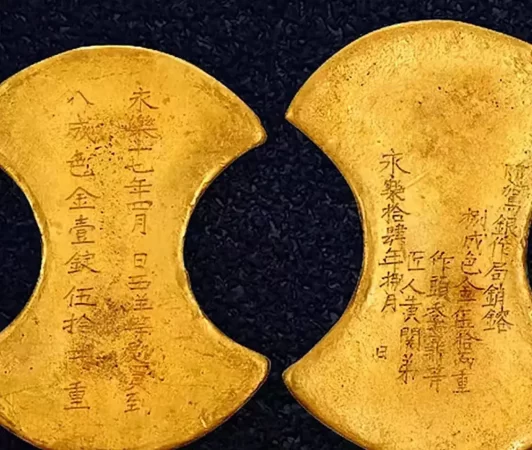 永樂十七年四月 日西洋等處買到
八成色金壹錠伍拾兩重
隨駕銀作局銷鎔
捌成色金伍拾兩重
作頭季鼎等
匠人黃關弟
永樂拾肆年捌月 日